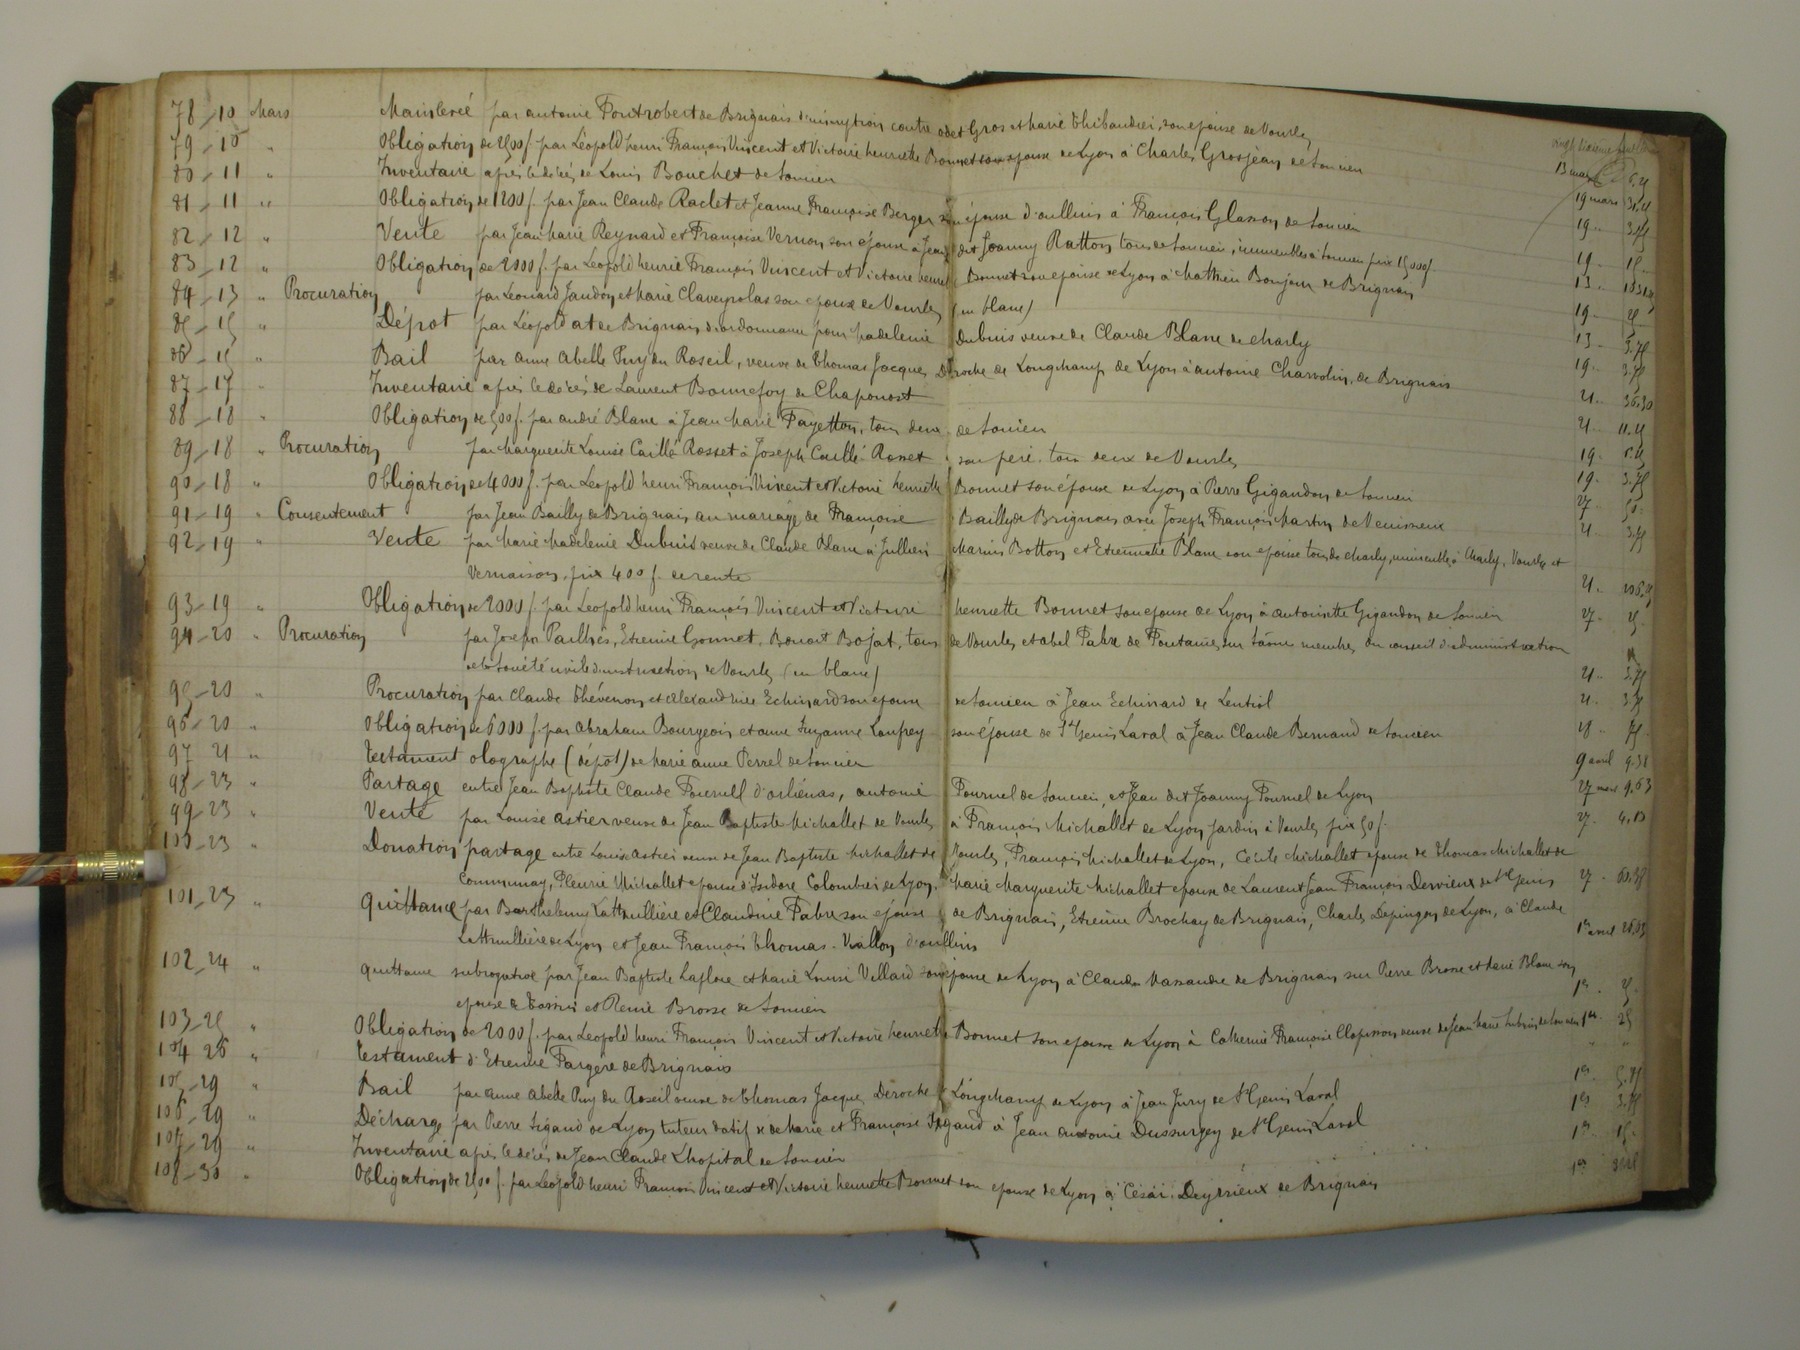 78 - 10 Mars Mainlevée par antoine Pontrobert de Brignais d'inscription contre Gros et Marie Thibaudier, son épouse de Vourles
79 - 10 " Obligation de f. par Léopold henri François Vincent et Victoire henriette Bonnet son épouse de Lyon à Charles Grosjean de Soucieu 13 mars
80 - 11 " Inventaire après le décès de Louis Bouchet de Soucieu 19 mars
81 - 11 " Obligation de 1200 f. par Jean Claude Raclet et Jeanne Françoise Berger son épouse d'oullins à François Glasson de Soucieu 19 "
82 - 12 " Vente par Jean Marie Reynard et Françoise Vernon son épouse à Jean dit Joanny Ratton tous de Soucieu, immeubles à Soucieu prix 15000 f. 19 "
83 - 12 " Obligation de 2000 f. par Léopold henri François Vincent et Victoire henriette Bonnet son épouse de Lyon à Matthieu Bonjour de Brignais 13 "
84 - 13 " Procuration par Léonard Jandon et Marie Claveyrolas son épouse de Vourles (en blanc) 19 "
85 - 15 " Dépot par Léopold de Brignais d'ordonnance pour Madeleine Dubuis veuve de Claude Blanc de charly 13 " 3.75
86 - " Bail par anne abelle Puy du Roseil, veuve de Thomas Jacques Deroche de Longchamp de Lyon à antoine Charvolin, de Brignais 19 " 3.75
87 - 17 " Inventaire après le décès de Laurent Bonnefoy de Chaponost 21 " 36.30
88 - 18 " Obligation de 500 f. par andré Blanc à Jean Marie Fayetton, tous deux de Soucieu 21 "
89 - 18 " Procuration par Marguerite Louise Caillé Rosset à Joseph Caillé Rosset son père, tous deux de Vourles 19 "
90 - 18 " Obligation de 4000 f. par Léopold henri François Vincent et Victoire henriette Bonnet son épouse de Lyon à Pierre Gigandon de Soucieu 27 " 50 "
91 - 19 " Consentement par Jean Bailly de Brignais au mariage de Françoise Bailly de Brignais avec Joseph François Martin de Venissieux 21 " 3.75
92 - 19 " Vente par Marie Madeleine Dubuis veuve de Claude Blanc à Jullien Marius Botton et Etiennette Blanc son épouse tous de charly, immeubles à Charly, Vourles et
Vernaison, prix 400 f. de rente 21 "
93 - 19 " Obligation de 2000 f. par Léopold henri François Vincent et Victoire henriette Bonnet son épouse de Lyon à antoinette Gigandon de Soucieu 27 " 25 "
94 - 20 " Procuration par Joseph Pailhès, Etienne Gonnet, Benoit Bojat, tous de Vourles et abel Fabre de Fontaines sur Saône membres du conseil d'administration
de la Société civile d'instruction de Vourles (en blanc) 21 " 3.75
95 - 20 " Procuration par Claude Thévenon et Alexandrine Echinard son épouse de Soucieu à Jean Echinard de Lentiol 21 " 3.75
96 - 20 " Obligation de 6000 f. par abraham Bourgeois et anne Suzanne Lanfrey son épouse de St Genis Laval à Jean Claude Bernand de Soucieu 75 "
97 21 " Testament olographe (dépôt) de Marie anne Perrel de Soucieu 9 avril 9.31
98 - 23 " Partage entre Jean Baptiste Claude Fournel d'orliénas, antoine Fournel de Soucieu, et Jean dit Joanny Fournel de Lyon 27 mars 9.63
99 - 23 " Vente par Louise astier veuve de Jean Baptiste Michallet de Vourles à François Michallet de Lyon Jardin à Vourles prix 50 f. 27 "
100 - 23 " Donation partage entre Louise astier veuve de Jean Baptiste Michallet de Vourles, François Michallet de Lyon, Cécile Michallet épouse de Thomas Michallet de
Communay, Fleurie Michallet épouse d'Isidore Colombier de Lyon, Marie Marguerite Michallet épouse de Laurent Jean François Dervieux de St Genis 27 "
101 - 23 " Quittance par Barthelemy Lathuillière et Claudine Fabre son épouse de Brignais, Etienne Brochay de Brignais, Charles Depingon de Lyon, à Claude
Lathuillière de Lyon et Jean François Thomas - Vallon d'oullins 1er avril
102 - 24 " Quittance subrogative par Jean Baptiste Laflore et Marie Louise Villard son épouse de Lyon à Claude Massandre de Brignais sur Pierre Brosse et Marie Blanc son
épouse de Tassin et Remie Brosse de Soucieu 1er "
103 - 25 " Obligation de 2000 f. par Léopold henri François Vincent et Victoire henriette Bonnet son épouse de Lyon à Catherine Françoise Clapisson veuve de Jean Marie de Soucieu 1er " 25
104 26 " Testament d'Etienne Fargère de Brignais " "
105 - 29 " Bail par anne abelle Puy du Roseil veuve de Thomas Jacques Deroche de Longchamp de Lyon à Jean Jury de St Genis Laval 1er "
106 - 29 " Décharge par Pierre Sigaud de Lyon tuteur datif de Marie et Françoise Sigaud à Jean antoine Dussurgey de St Genis Laval 1er " 3.75
107 - 29 " Inventaire après le décès de Jean Claude Lhopital de Soucieu 1er " 15 "
108 - 30 " Obligation de f. par Léopold henri François Vincent et Victoire henriette Bonnet son épouse de Lyon à César Deyrieux de Brignais 1er "